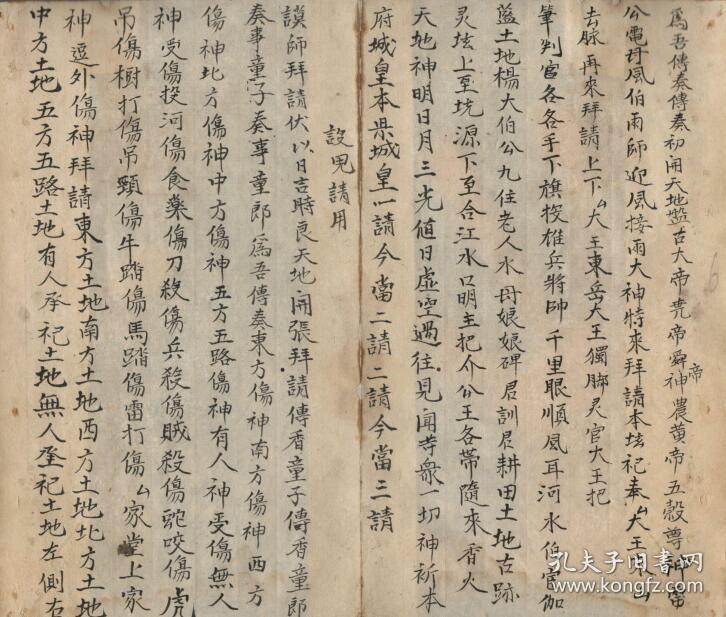 爲吾傳奏傳奏初開天地盤古大帝堯帝舜帝神農黄帝五穀尊神雷
公電母風伯雨師迎風接雨大神特來拜請本坛祀奉厶大王東厶
去脉再來拜請上下厶大王東岳大王獨脚灵官大王把
筆判官各各手下旗投雄兵將帥千里眼順風耳河水伯官伽
藍土地楊大伯公九住老人水母娘娘碑君訓君耕田土地古跡
灵坛上至坑源下至合江水口明主把介公王各帶隨來香火
天地神明日月三光值日虚空過往見聞寺衆一切神祈本
府城皇本県城皇一請今當二請二請今當三請
設鬼請用
謨師拜請伏以日吉時良天地開張拜請傳香童子傳香童郎
奏事童子奏事童郎爲吾傳奏東方傷神南方傷神西方
傷神北方傷神中方傷神五方五路傷神有人神受傷無人
神受傷投河傷食藥傷刀殺傷兵殺傷賊殺傷蛇咬傷虎
吊傷樹打傷吊頸傷牛踏傷馬踏傷雷打傷厶家堂上家
神逕外傷神拜請東方土地南方土地西方土地北方土地
中方土地五方五路土地有人承祀土地無人承祀土地左側右
孔夫子旧书网
www.kongfz.com